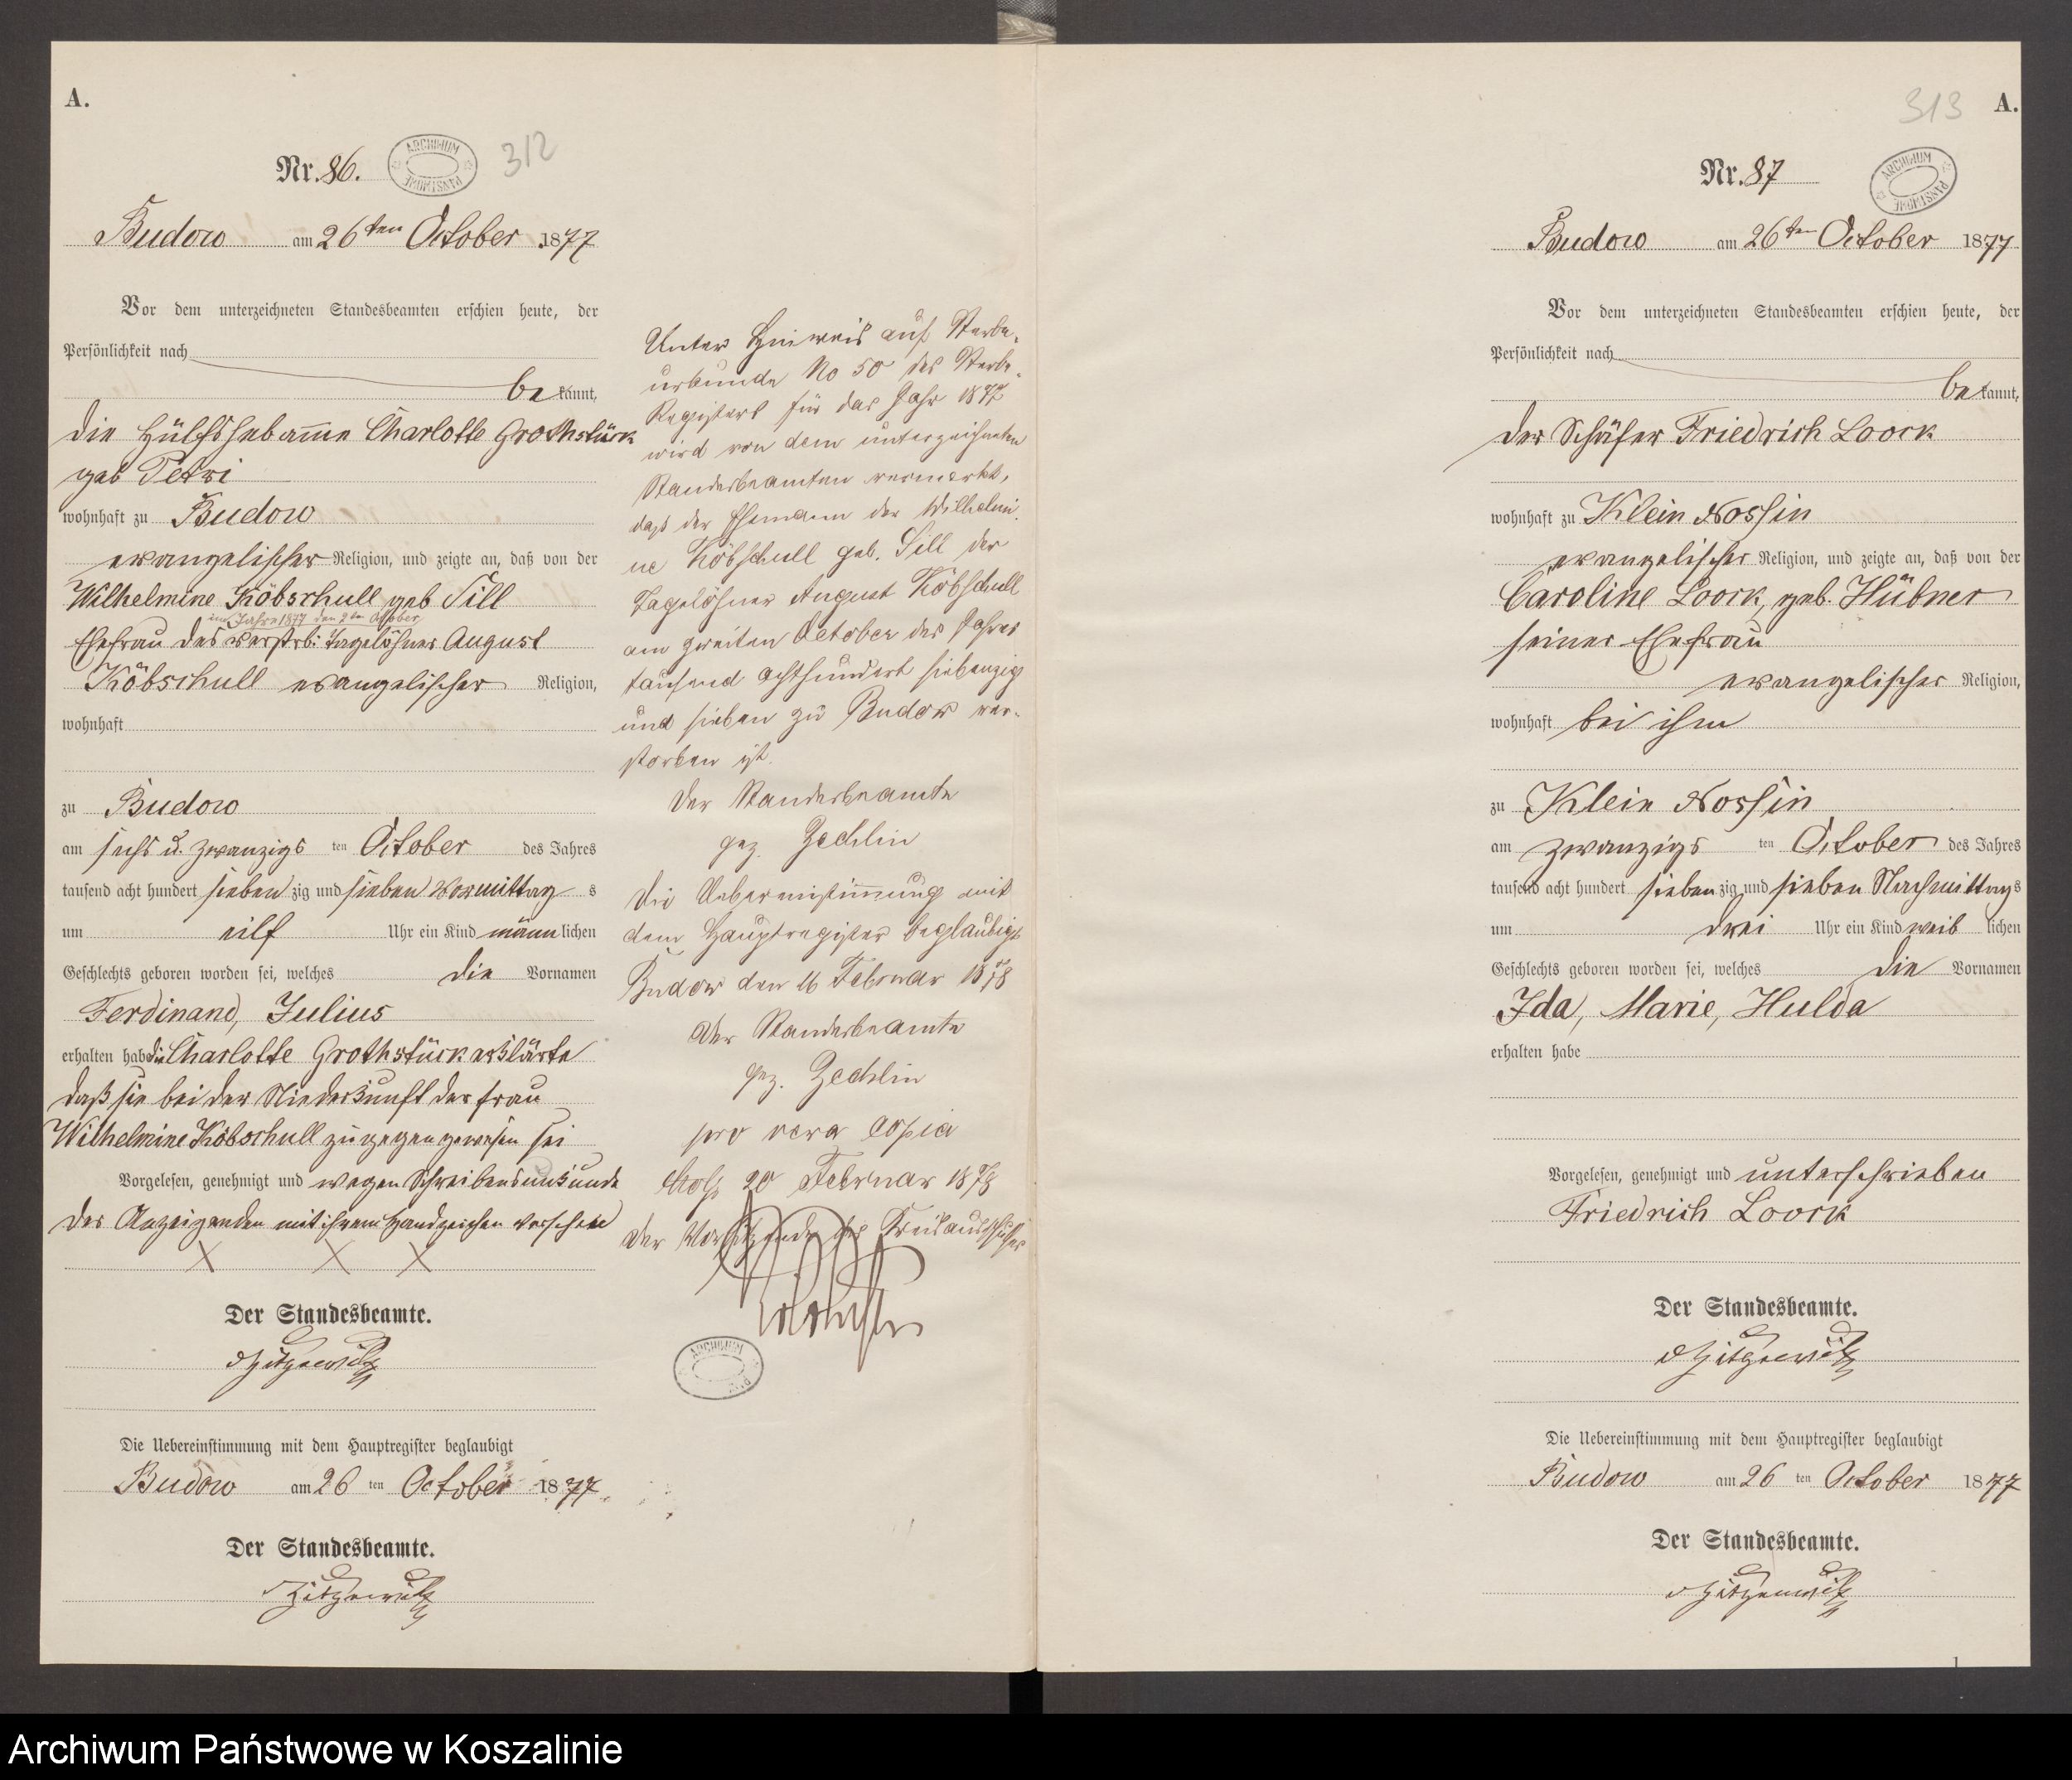 A.
Nr. 86.
312
ARCHIWUM PAŃSTWOWE
Budow am 26ten October 1877
Vor dem unterzeichneten Standesbeamten erschien heute, der
Persönlichkeit nach
bekannt,
die Hülfshebamme Charlotte Grothstück
geb Petri
wohnhaft zu Budow
evangelischer Religion, und zeigte an, daß von der
Wilhelmine Köbschull geb Sill
im Jahre 1877 den 2ten October
Ehefrau des verstrb: Tagelöhner August
Köbschull evangelischer Religion,
wohnhaft
zu Budow
am sechs u. zwanzigs ten October des Jahres
tausend acht hundert sieben zig und sieben Vormittag s
um eilf Uhr ein Kind männlichen
Geschlechts geboren worden sei, welches die Vornamen
Ferdinand, Julius
erhalten habe die Charlotte Grothstück erklärte
daß sie bei der Niederkunft der Frau
Wilhelmine Köbschull zugegen gewesen sei
Vorgelesen, genehmigt und wegen Schreibensunkunde
der Anzeigenden mit ihrem Handzeichen versehen
X X X
Der Standesbeamte.
v Zitzewitz
Die Uebereinstimmung mit dem Hauptregister beglaubigt
Budow am 26 ten October 1877
Der Standesbeamte.
v Zitzewitz
Unter Hinweis auf Sterbe-
urkunde No 50 des Sterbe-
Registers für das Jahr 1877
wird von dem unterzeichneten
Standesbeamten vermerkt,
daß der Ehemann der Wilhelmi-
ne Köbschull geb. Sill der
Tagelöhner August Köbschull
am zweiten October des Jahres
tausend achthundert siebenzig
und sieben zu Budow ver-
storben ist.
Der Standesbeamte
gez. Zechlin
Die Uebereinstimmung mit
dem Hauptregister beglaubigt
Budow den 16 Februar 1878
Der Standesbeamte
gez. Zechlin
pro vera copia
Stolp 20 Februar 1878
Der Vorsitzende des Kreisausschusses
ARCHIWUM
A.
313
Nr. 87
ARCHIWUM PAŃSTWOWE
Budow am 26ten October 1877
Vor dem unterzeichneten Standesbeamten erschien heute, der
Persönlichkeit nach
bekannt,
der Schäfer Friedrich Loock
wohnhaft zu Klein Nossin
evangelischer Religion, und zeigte an, daß von der
Caroline Loock, geb. Hübner
seiner Ehefrau
evangelischer Religion,
wohnhaft bei ihm
zu Klein Nossin
am zwanzigs ten October des Jahres
tausend acht hundert sieben zig und sieben Nachmittags
um drei Uhr ein Kind weib lichen
Geschlechts geboren worden sei, welches die Vornamen
Ida, Marie, Hulda
erhalten habe
Vorgelesen, genehmigt und unterschrieben
Friedrich Loock
Der Standesbeamte.
v Zitzewitz
Die Uebereinstimmung mit dem Hauptregister beglaubigt
Budow am 26 ten October 1877
Der Standesbeamte.
v Zitzewitz
Archiwum Państwowe w Koszalinie